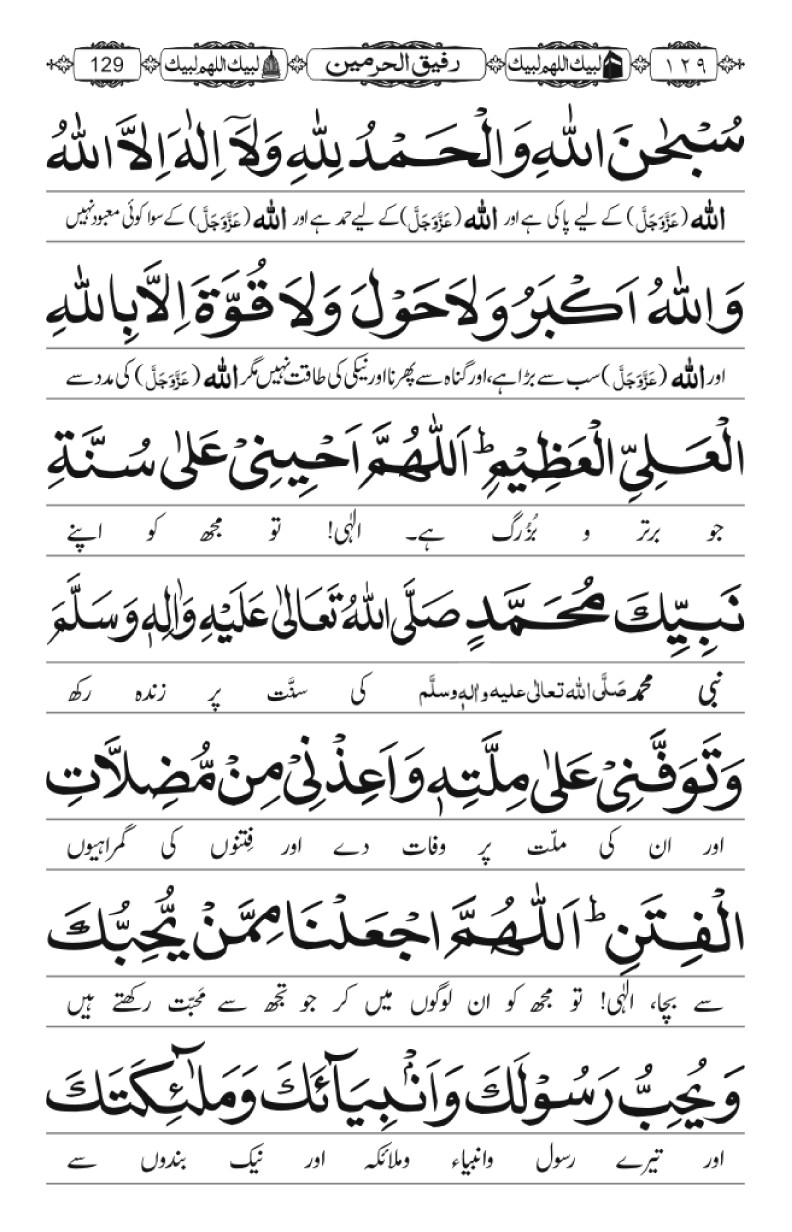 ١٢٩ لبیك اللهم لبیك رفیق الحرمین لبیك اللهم لبیك 129
سُبْحٰنَ اللّٰهِ وَالْحَمْدُ لِلّٰهِ وَلَآ اِلٰهَ اِلَّا اللّٰهُ
اللّٰه (عَزَّوَجَلَّ) کے لیے پاکی ہے اور اللّٰه (عَزَّوَجَلَّ) کے لیے حمد ہے اور اللّٰه (عَزَّوَجَلَّ) کے سوا کوئی معبود نہیں
وَاللّٰهُ اَكْبَرُ وَلَا حَوْلَ وَلَا قُوَّةَ اِلَّا بِاللّٰهِ
اور اللّٰه (عَزَّوَجَلَّ) سب سے بڑا ہے، اور گناہ سے پھرنا اور نیکی کی طاقت نہیں مگر اللّٰه (عَزَّوَجَلَّ) کی مدد سے
الْعَلِيِّ الْعَظِيْمِ ؕ اَللّٰهُمَّ اَحْيِنِيْ عَلٰى سُنَّةِ
جو برتر و بُزُرگ ہے۔ الٰہی! تو مجھ کو اپنے
نَبِيِّكَ مُحَمَّدٍ صَلَّى اللّٰهُ تَعَالٰى عَلَيْهِ وَاٰلِهٖ وَسَلَّمَ
نبی محمد صَلَّی اللّٰہ تعالٰی علیہ واٰلہٖ وسلَّم کی سنَّت پر زندہ رکھ
وَتَوَفَّنِيْ عَلٰى مِلَّتِهٖ وَاَعِذْنِيْ مِنْ مُّضِلَّاتِ
اور ان کی ملّت پر وفات دے اور فِتنوں کی گمراہیوں
الْفِتَنِ ؕ اَللّٰهُمَّ اجْعَلْنَا مِمَّنْ يُّحِبُّكَ
سے بچا، الٰہی! تو مجھ کو ان لوگوں میں کر جو تجھ سے مَحَبّت رکھتے ہیں
وَيُحِبُّ رَسُوْلَكَ وَاَنْۢبِيَآئَكَ وَمَلٰٓئِكَتَكَ
اور تیرے رسول وانبیاء وملائکہ اور نیک بندوں سے